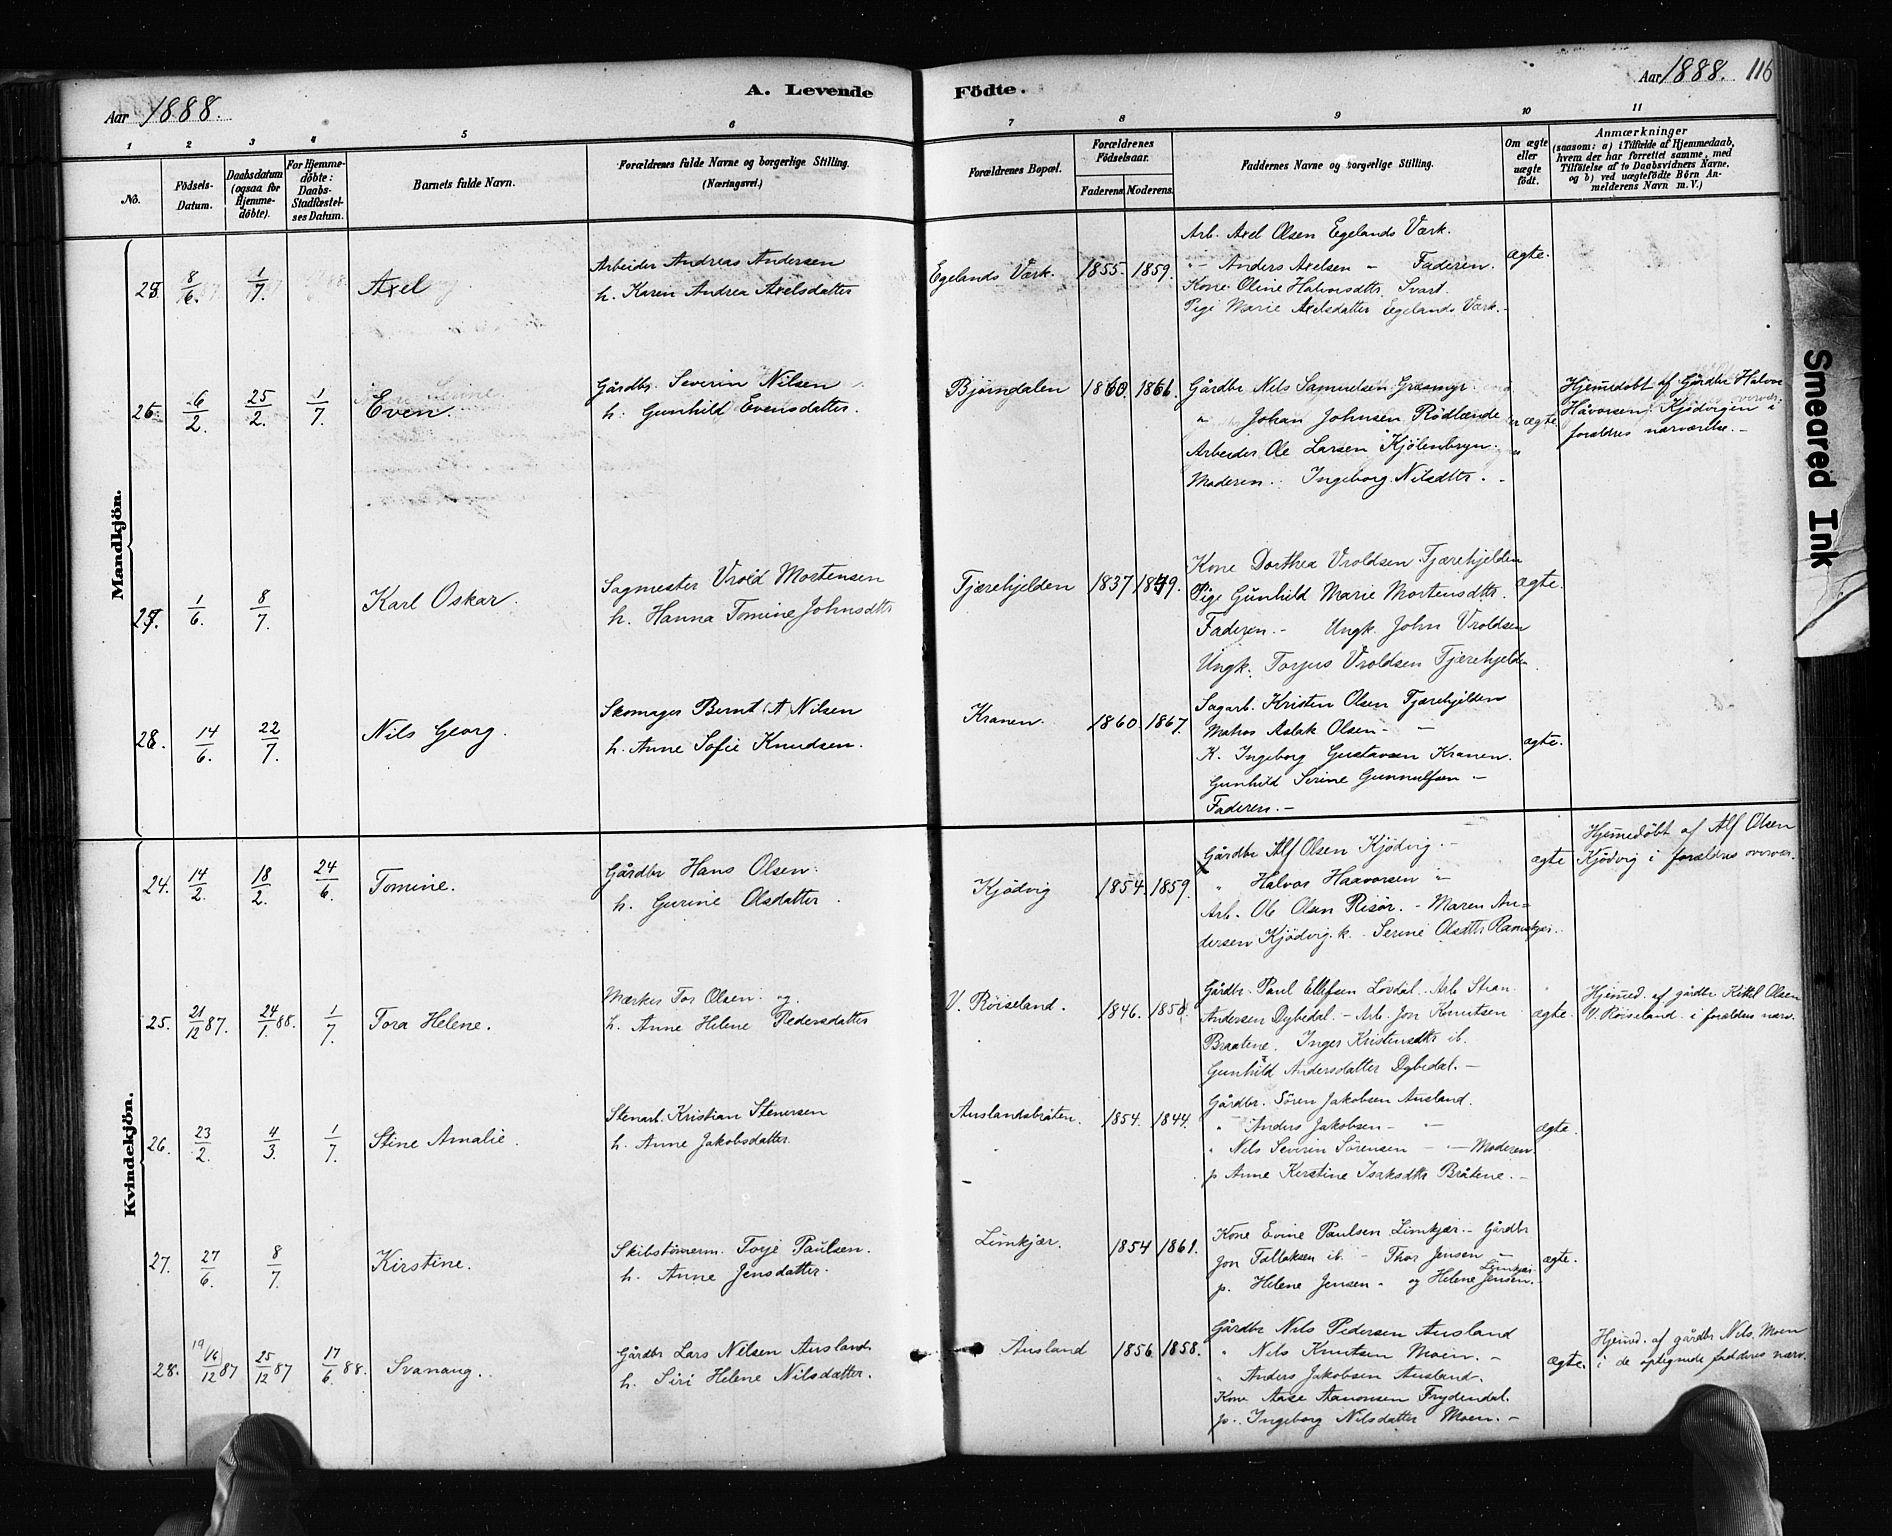 Aar 1888.
A. Levende
Födte.
Aar 1888. 116
1 2 3 4 5 6
7 8 9 10 11
No.
Födsels-Datum.
Daabsdatum (ogsaa for Hjemme-döbte).
For Hjemme-döbte: Daabs-Stadfæstel-ses Datum.
Barnets fulde Navn.
Forældrenes fulde Navne og borgerlige Stilling. (Næringsvei.)
Forældrenes Bopæl.
Forældrenes Födselsaar.
Faderens. Moderens.
Faddernes Navne og borgerlige Stilling.
Om ægte eller uægte födt.
Anmærkninger
(saasom: a) i Tilfælde af Hjemmedaab,
hvem der har forrettet samme, med
Tilföielse af to Daabsvidners Navne,
og b) ved uægtefödte Börn An-
melderens Navn m. V.)
Mandkjön.
25. 8/6. 1/7. Axel
Arbeider Andreas Andersen
h. Karen Andrea Axelsdatter
Egelands Værk. 1855. 1859.
Arb. Axel Olsen Egelands Værk.
" - Anders Axelsen - Faderen.
Kone Oline Halvorsdtr. Svart.
Pige Marie Axelsdatter Egelands Værk.-
ægte.
26. 6/2. 25/2. 1/7 Even.
Gårdbr. Severin Nilsen
h. Gunhild Evensdatter.
Bjorndalen 1860. 1861.
Gårdbr Nils Samuelsen Grasmyr
" Johan Johnsen Rödlænde
Arbeider Ole Larsen Kjölenbryn.
Moderen. Ingeborg Nilsdtr. -
ægte.
Hjemmedöbt af Gårdbr Halvor
Håvorsen Kjödvigen i
foreldres nærværelse.-
27. 1/6. 8/7. Karl Oskar.
Sagmester Vrold Mortensen
h. Hanna Tomine Johnsdtr
Tjærehjelden 1837 1849.
Kone Dorthea Vroldsen Tjærehjelden
Pige Gunhild Marie Mortensdtr.
Faderen.- Ungk. John Vroldsen
Ungk. Torjus Vroldsen Tjærehjelden
ægte.
28. 14/6. 22/7. Nils Georg.
Skomager Bernt (A) Nilsen
h. Anne Sofie Knudsen.
Kranen. 1860. 1867.
Sagarb. Kristen Olsen Tjærehjelden
Matros Aslak Olsen- -
K. Ingeborg Gustavsen Kranen.
Gunhild Serine Gunnulfsen -
Faderen.-
ægte.
Kvindekjön.
24. 14/2. 18/2. 24/6. Tomine.
Gårdbr Hans Olsen.
h. Gurine Olsdatter.
Kjödvig 1854. 1859.
Gårdbr Alf Olsen Kjödvig.-
" Halvor Haavorsen "
Arb. Ole Olsen Risör.- Maren An=
dersen Kjödvig. k. - Serine Olsdtr.
ægte
Hjemmedöbt af Alf Olsen
Kjödvig i foreldres overvær.
25. 21/12 87. 24/1 88. 1/7. Tora Helene.
Mærker Tor Olsen og
h. Anne Helene Pedersdatter
V. Röiseland. 1846. 1850
Gårdbr. Paul Ellefsen Lovdal. Arb.
Andersen Dybedal.- Arb. Jon Knutsen
Braatene. Inger Kristensdtr ib.
Gunhild Andersdatter Dybedal.-
ægte.
Hjemmed. af gårdbr Kittel Olsen
V. Röiseland i foreldres nærv.
26. 23/2. 4/3. 1/7. Stine Amalie.
Stenarb. Kristian Stenersen
h. Anne Jakobsdatter
Auslandsbråten. 1854. 1844.
Gårdbr. Sören Jakobsen Ausland.
" Anders Jakobsen- -
" Nils Severin Sörensen - - Moderen
p Anne Kirstine Isaksdtr Bråtene.-
ægte.
27. 27/6. 8/7. Kirstine.
Skibstömerm. Torje Paulsen.
h. Anne Jensdatter.
Limkjær. 1854 1861.
Kone Evine Paulsen Limkjær.- Gårdbr
Jon Tallaksen ib. - Thor Jensen -
p. Helene Jensen - og Helene Jensen. Limkjær
ægte.
28. 19 16/12 87 25/12 87 17/6 88. Svanaug.
Gårdbr Lars Nilsen Ausland.
h. Siri Helene Nilsdatter.
Ausland 1856. 1858.
Gårdbr Nils Pedersen Ausland
" Nils Knutsen Moen. -
" Anders Jakobsen Ausland.
Kone Aase Aanonsen Frydendal.
p. Ingeborg Nilsdatter Moen.-
ægte.
Hjemmed. af gårdbr Nils Moen
i de optegnede fadderes nærv.
Smeared Ink